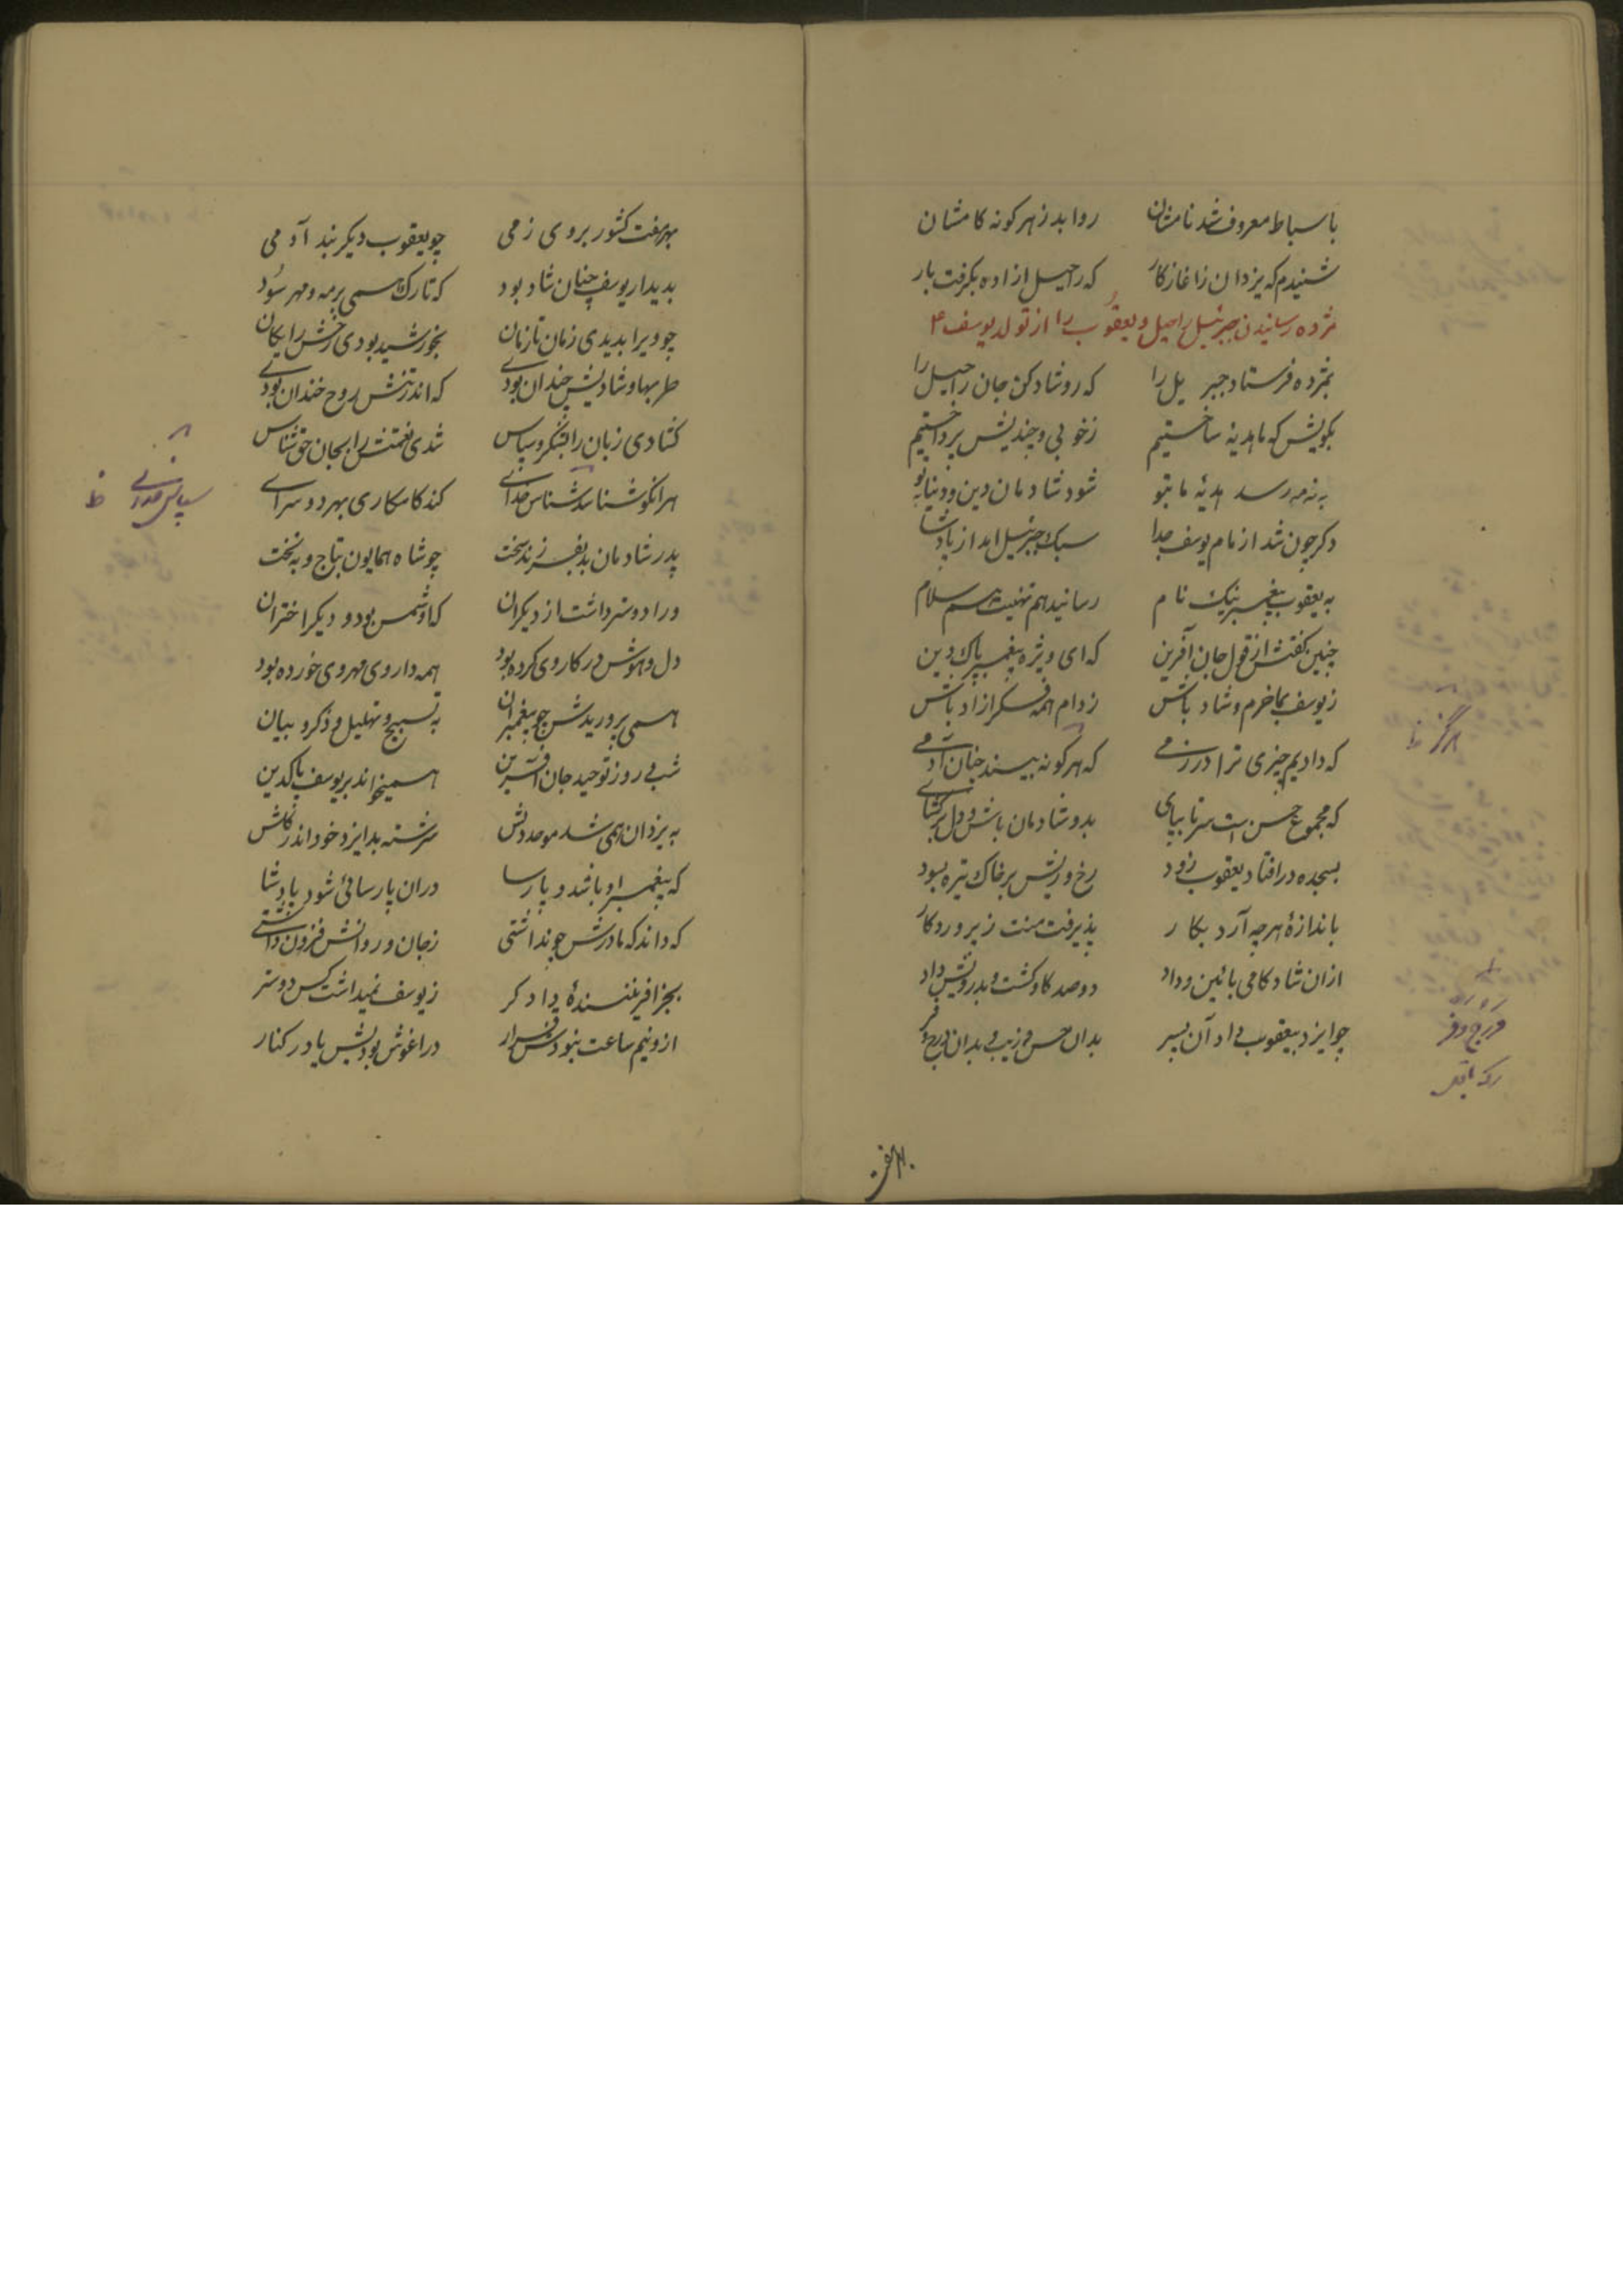 باسباط معروف شد نامشان روا بد ز هر کونه کامشان
شنیدم که یزدان ز آغاز کار که راحیل ازاده بکرفت بار
مژده رسانیدن جبرئیل راحیل و یعقوب را از تولد یوسف ۴
بمژده فرستاد جبریل را که رو شاد کن جان راحیل را
بکویش که ما هدیه ساختیم ز خوبی و چندیش پرداختیم
به نه مه رسد هدیهٔ ما بتو شود شادمان دین و دنیا بتو
دکر چون شد از مام یوسف جدا سبک جبرئیل امد از پادشا
به یعقوب پیغمبر نیک نام رسانید هم تهنیت هم سلام
چنین کفتش از قول جان آفرین که ای ویژه پیغمبر پاک دین
ز یوسف بما خرم و شاد باش ز دام همه فکر ازاد باش
که دادیم چیزی ترا در زمی که هر کونه بیند چنان آدمی
که مجموع حسن است سر تا بپای بدو شادمان باش و دل برکشای
بسجده در افتاد یعقوب زود رخ و ریش بر خاک تیره بسود
باندازهٔ هر چه آرد بکار پذیرفت منت ز پروردکار
ازان شادکامی بائین و داد دو صد کاو کشت و بدرویش داد
چو ایزد بیعقوب داد آن پسر بدان حسن و زیب و بدان
هرگز نا
بهر هفت کشور بروی زمی چو یعقوب دیکر نبد آدمی
بدیدار یوسف چنان شاد بود که تارک همی بر مه و مهر سود
چو ویرا بدیدی زمان تا زمان بخورشید بودی رخش رایکان
طربها و شادیش چندان بودی که اندر تنش روح خندان بودی
کشادی زبان را بشکر و سپاس شدی نعمتش را بجان حق شناس
هر انکو شناسد شناس خدای کند کامکاری بهر دو سرای
سپاس خدای ظ
پدر شادمان بد بفرزند سخت چو شاه همایون بتاج و به تخت
ورا دوستر داشت از دیکران که او شمس بود و دیکر اختران
دل و هوش در کار وی کرده بود همه داروی مهر وی خورده بود
همی پروریدش چو پیغمبران به تسبیح و تهلیل و ذکر و بیان
شب و روز توحید جان آفرین همیخواند بر یوسف پاکدین
به یزدان همی شد موحد دلش سرشته بد ایزد خود اندر کلش
که پیغمبر او باشد و پارسا دران پارسائی شود پادشا
که داند که مادرش چون داشتی ز جان و روانش فزون داشتی
بجز افریننندهٔ دادکر ز یوسف نمیداشت کس دوستر
ازو نیم ساعت نبودش قرار در اغوش بودیش یا در کنار